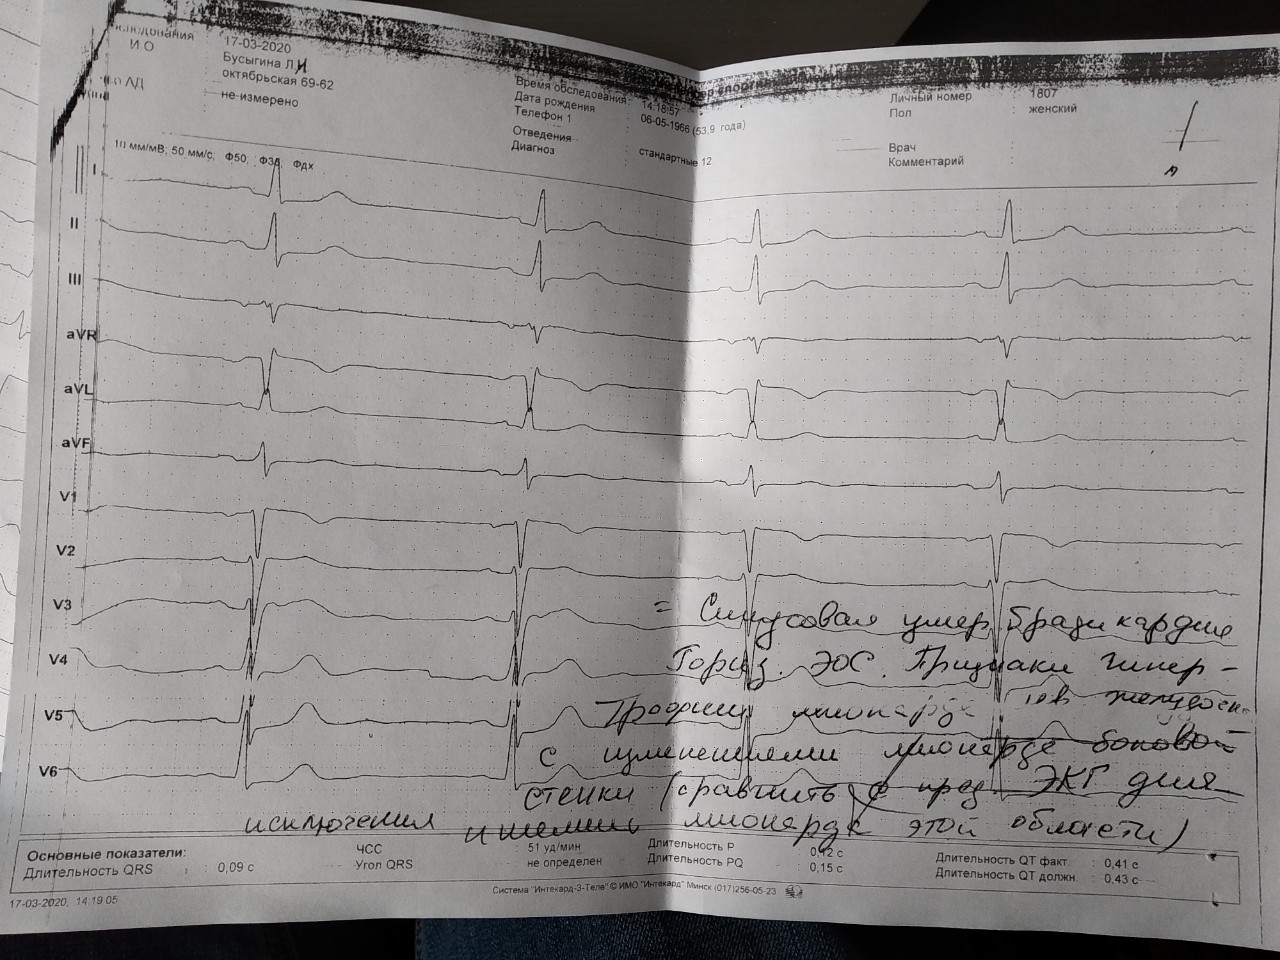 17-03-2020
И.О Бусыгина Л И
октябрьская 69-62
АД : не измерено
Время обследования : 14:18:57
Дата рождения : 06-05-1966 (53,9 года)
Телефон 1
Отведения : стандартные 12
Диагноз
Личный номер : 1807
Пол : женский
Врач :
Комментарий :
10 мм/мВ; 50 мм/с; Ф50; Фдх
I
II
III
aVR
aVL
aVF
V1
V2
V3
V4
V5
V6
= Синусовая умер. брадикардия
Гориз. ЭОС. Признаки гипер-
трофии миокарда желудочк.
с изменениями миокарда боковой
стенки (сравнить с пред. ЭКГ для
исключения ишемии миокарда этой области)
Основные показатели:
Длительность QRS : 0,09 с
ЧСС : 51 уд/мин
Угол QRS : не определен
Длительность P : 0,12 с
Длительность PQ : 0,15 с
Длительность QT факт. : 0,41 с
Длительность QT должн. : 0,43 с
17-03-2020, 14:19:05
Система "Интекард-3-Теле" © ИМО "Интекард" Минск (017)256-05-23